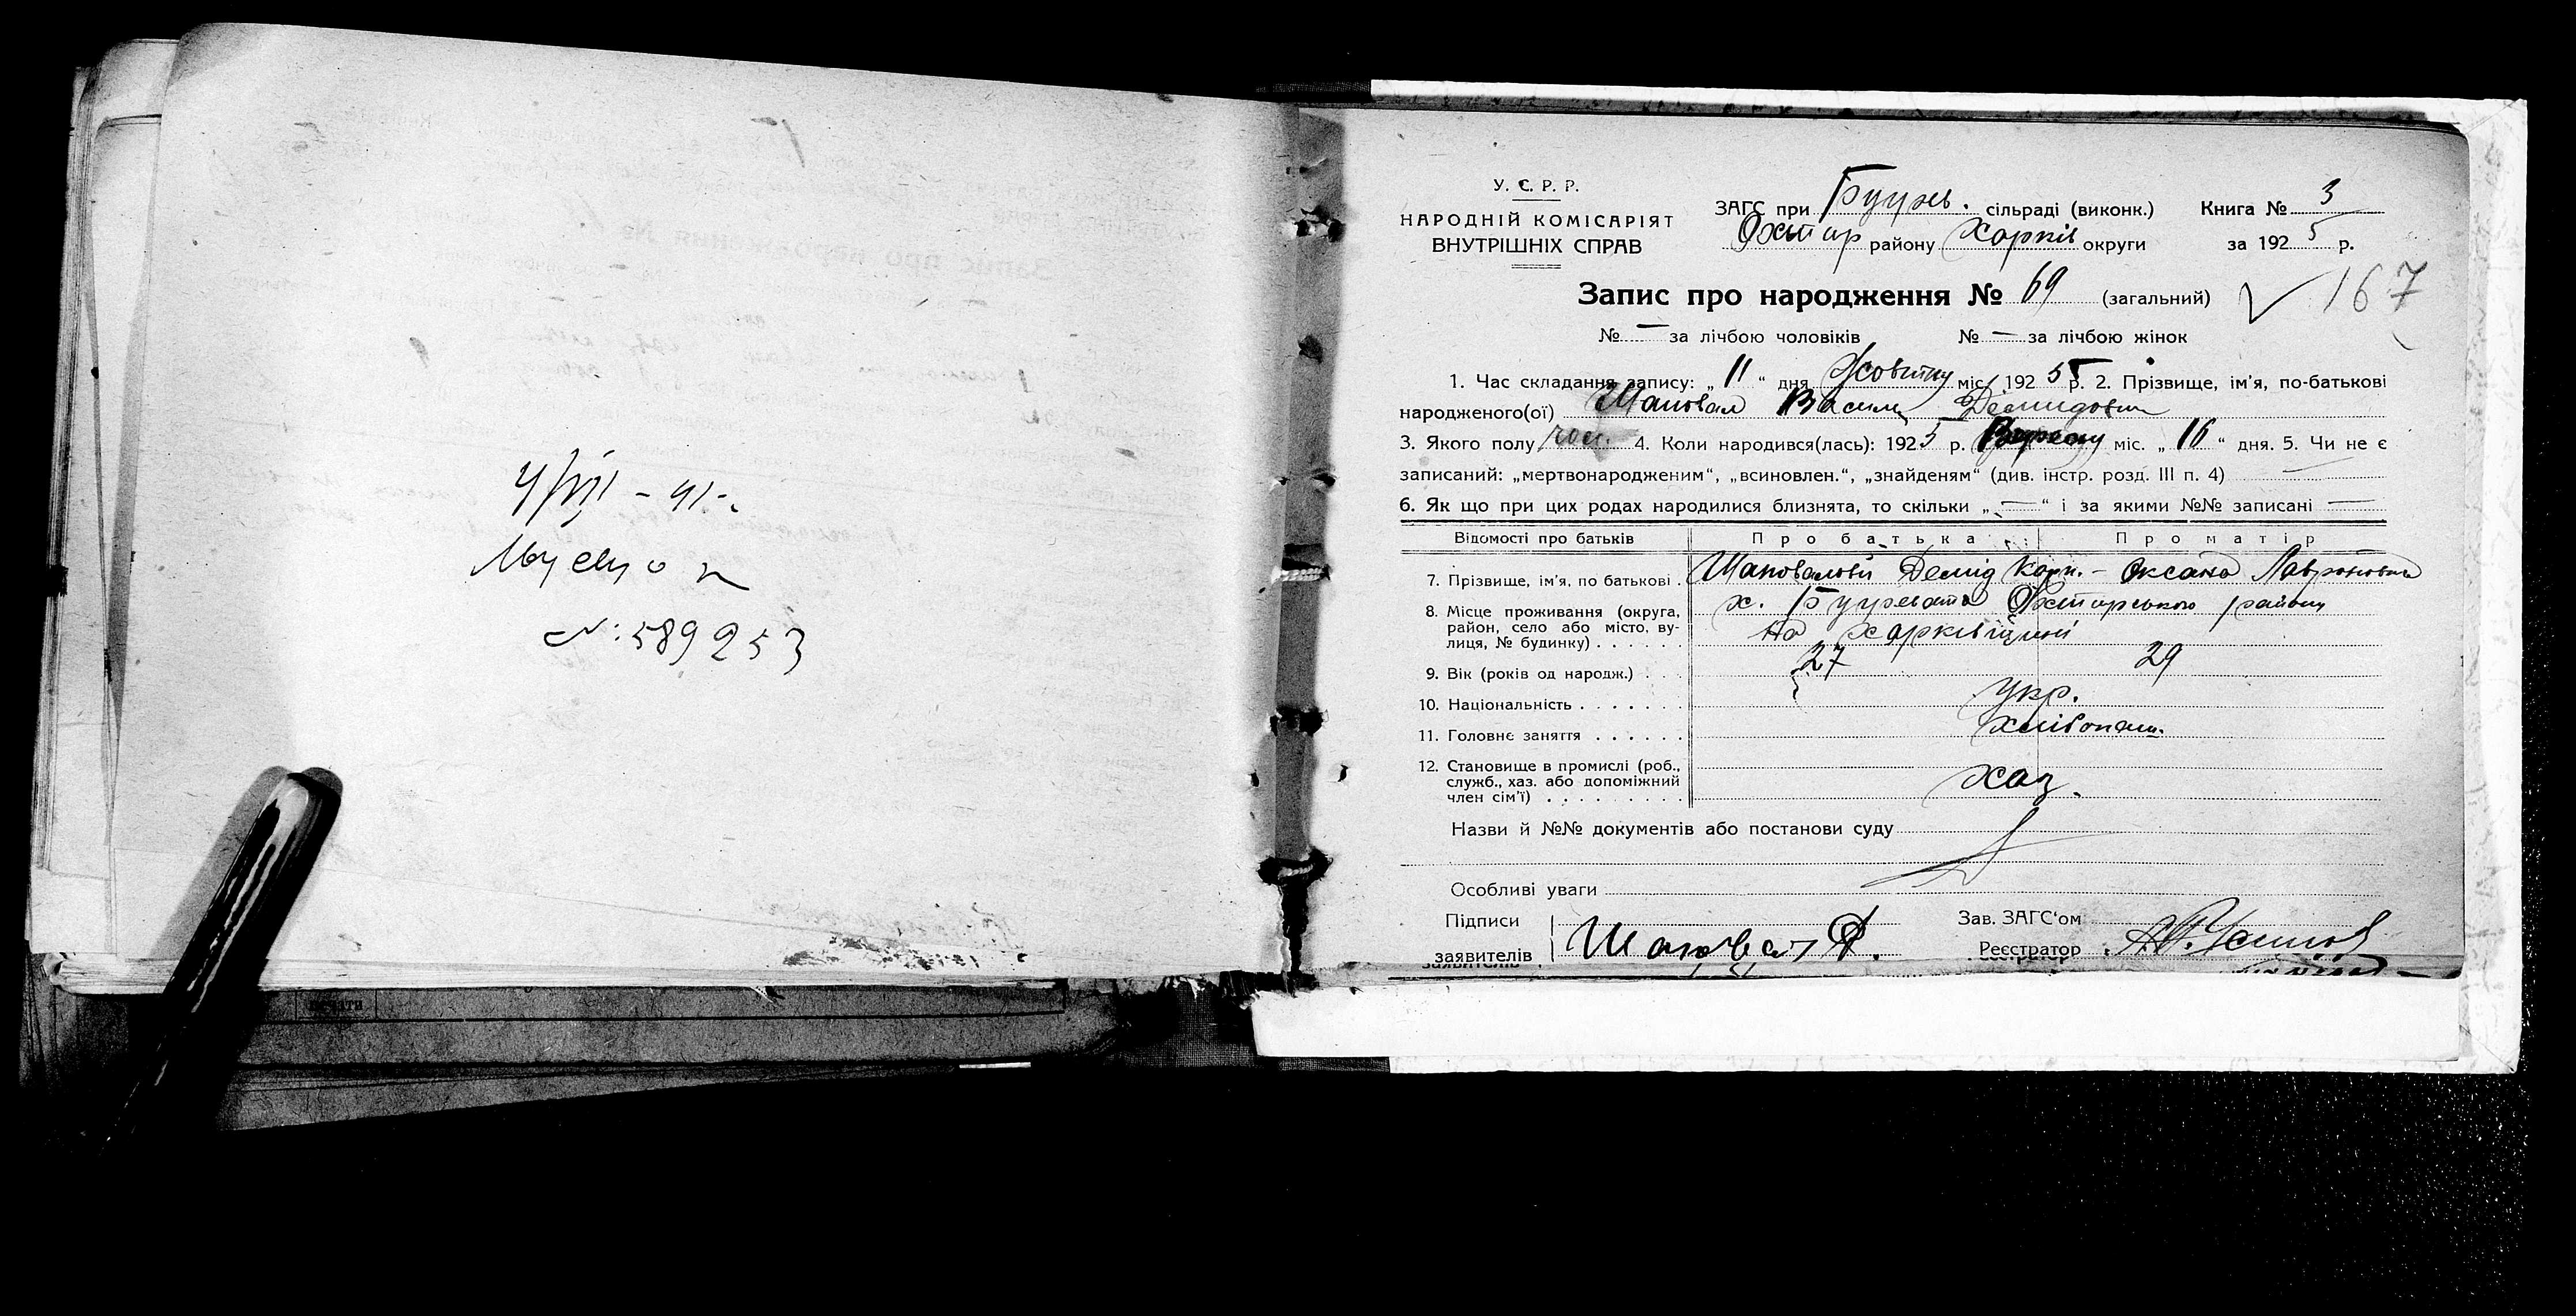 4/VII - 41.
№: 589253
У. С. Р. Р.
НАРОДНІЙ КОМІСАРІЯТ
ВНУТРІШНІХ СПРАВ
ЗАГС при сільраді (виконк.)
Охтир району Харків округи
Книга № 3
за 1925 р.
Запис про народження № 69 (загальний) 167
№ — за лічбою чоловіків № — за лічбою жінок
1. Час складання запису: „ 11 “ дня Жовтну міс. 1925 р. 2. Прізвище, ім'я, по-батькові
народженого(ої) Шаповал Василь Демидович
3. Якого полу чол. 4. Коли народився(лась): 1925 р. Вересну міс. „ 16 “ дня. 5. Чи не є
записаний: „мертвонародженим“, „всиновлен.“, „знайденям“ (див. інстр. розд. III п. 4) —
6. Як що при цих родах народилися близнята, то скільки „ — “ і за якими №№ записані —
Відомості про батьків Про батька Про матір
7. Прізвище, ім'я, по батькові . Шаповалови Демид Карп. - Оксана
8. Місце проживання (округа, х. Охтирського району
район, село або місто, ву- на Харківщині
лиця, № будинку) . . . . . .
9. Вік (років од народж.) . . . 27 29
10. Національність . . . . . . . укр.
11. Головнє заняття . . . . . . хлібопаш.
12. Становище в промислі (роб.,
служб., хаз. або допоміжний хаз.
член сім'ї) . . . . . . . . .
Назви й №№ документів або постанови суду
Особливі уваги
Підписи Зав. ЗАГС'ом
заявителів Шаповал Д. Реєстратор